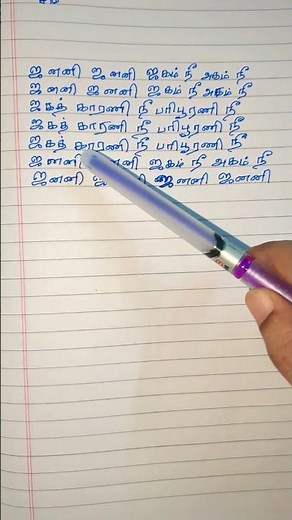 ஜனனி ஜனனி ஜகம் நீ அகம் நீ
ஜனனி ஜனனி ஜகம் நீ அகம் நீ
ஜகத் காரணி நீ பரிபூரணி நீ
ஜகத் காரணி நீ பரிபூரணி நீ
ஜகத் காரணி நீ பரிபூரணி நீ
ஜனனி ஜகம் நீ அகம் நீ
ஜனனி ஜனனி ஜனனி